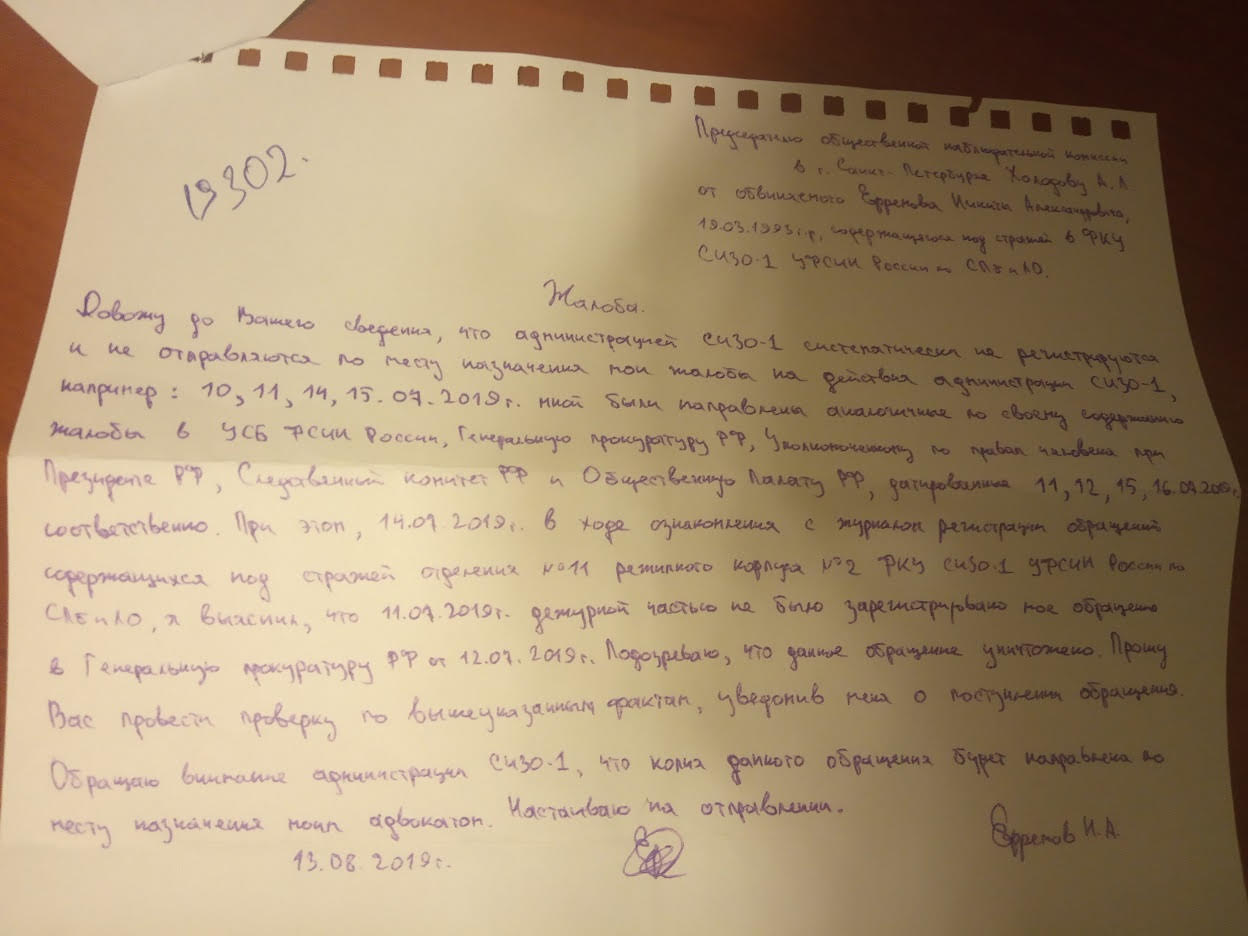 19302.
Председателю общественной наблюдательной комиссии
в г. Санкт-Петербурге Холодову А.Л
от обвиняемого Ефремова Никиты Александровича,
19.03.1993г.р, содержащегося под стражей в ФКУ
СИЗО-1 УФСИН России по СПб и ЛО.
Жалоба.
Довожу до Вашего сведения, что администрацией СИЗО-1 систематически не регистрируются
и не отправляются по месту назначения мои жалобы на действия администрации СИЗО-1,
например: 10, 11, 14, 15.07.2019г. мной были направлены аналогичные по своему содержанию
жалобы в УСБ ФСИН России, Генеральную прокуратуру РФ, Уполномоченному по правам человека при
Президенте РФ, Следственный комитет РФ и Общественную Палату РФ, датированные 11, 12, 15, 16.07.2019г.
соответственно. При этом, 14.07.2019г. в ходе ознакомления с журналом регистрации обращений
содержащихся под стражей отделения №11 режимного корпуса №2 ФКУ СИЗО-1 УФСИН России по
СПб и ЛО, я выяснил, что 11.07.2019г. дежурной частью не было зарегистрировано мое обращение
в Генеральную прокуратуру РФ от 12.07.2019г. Подозреваю, что данное обращение уничтожено. Прошу
Вас провести проверку по вышеуказанным фактам, уведомив меня о поступлении обращения.
Обращаю внимание администрации СИЗО-1, что копия данного обращения будет направлена по
месту назначения моим адвокатом. Настаиваю на отправлении.
13.08.2019г.
Ефремов Н.А.